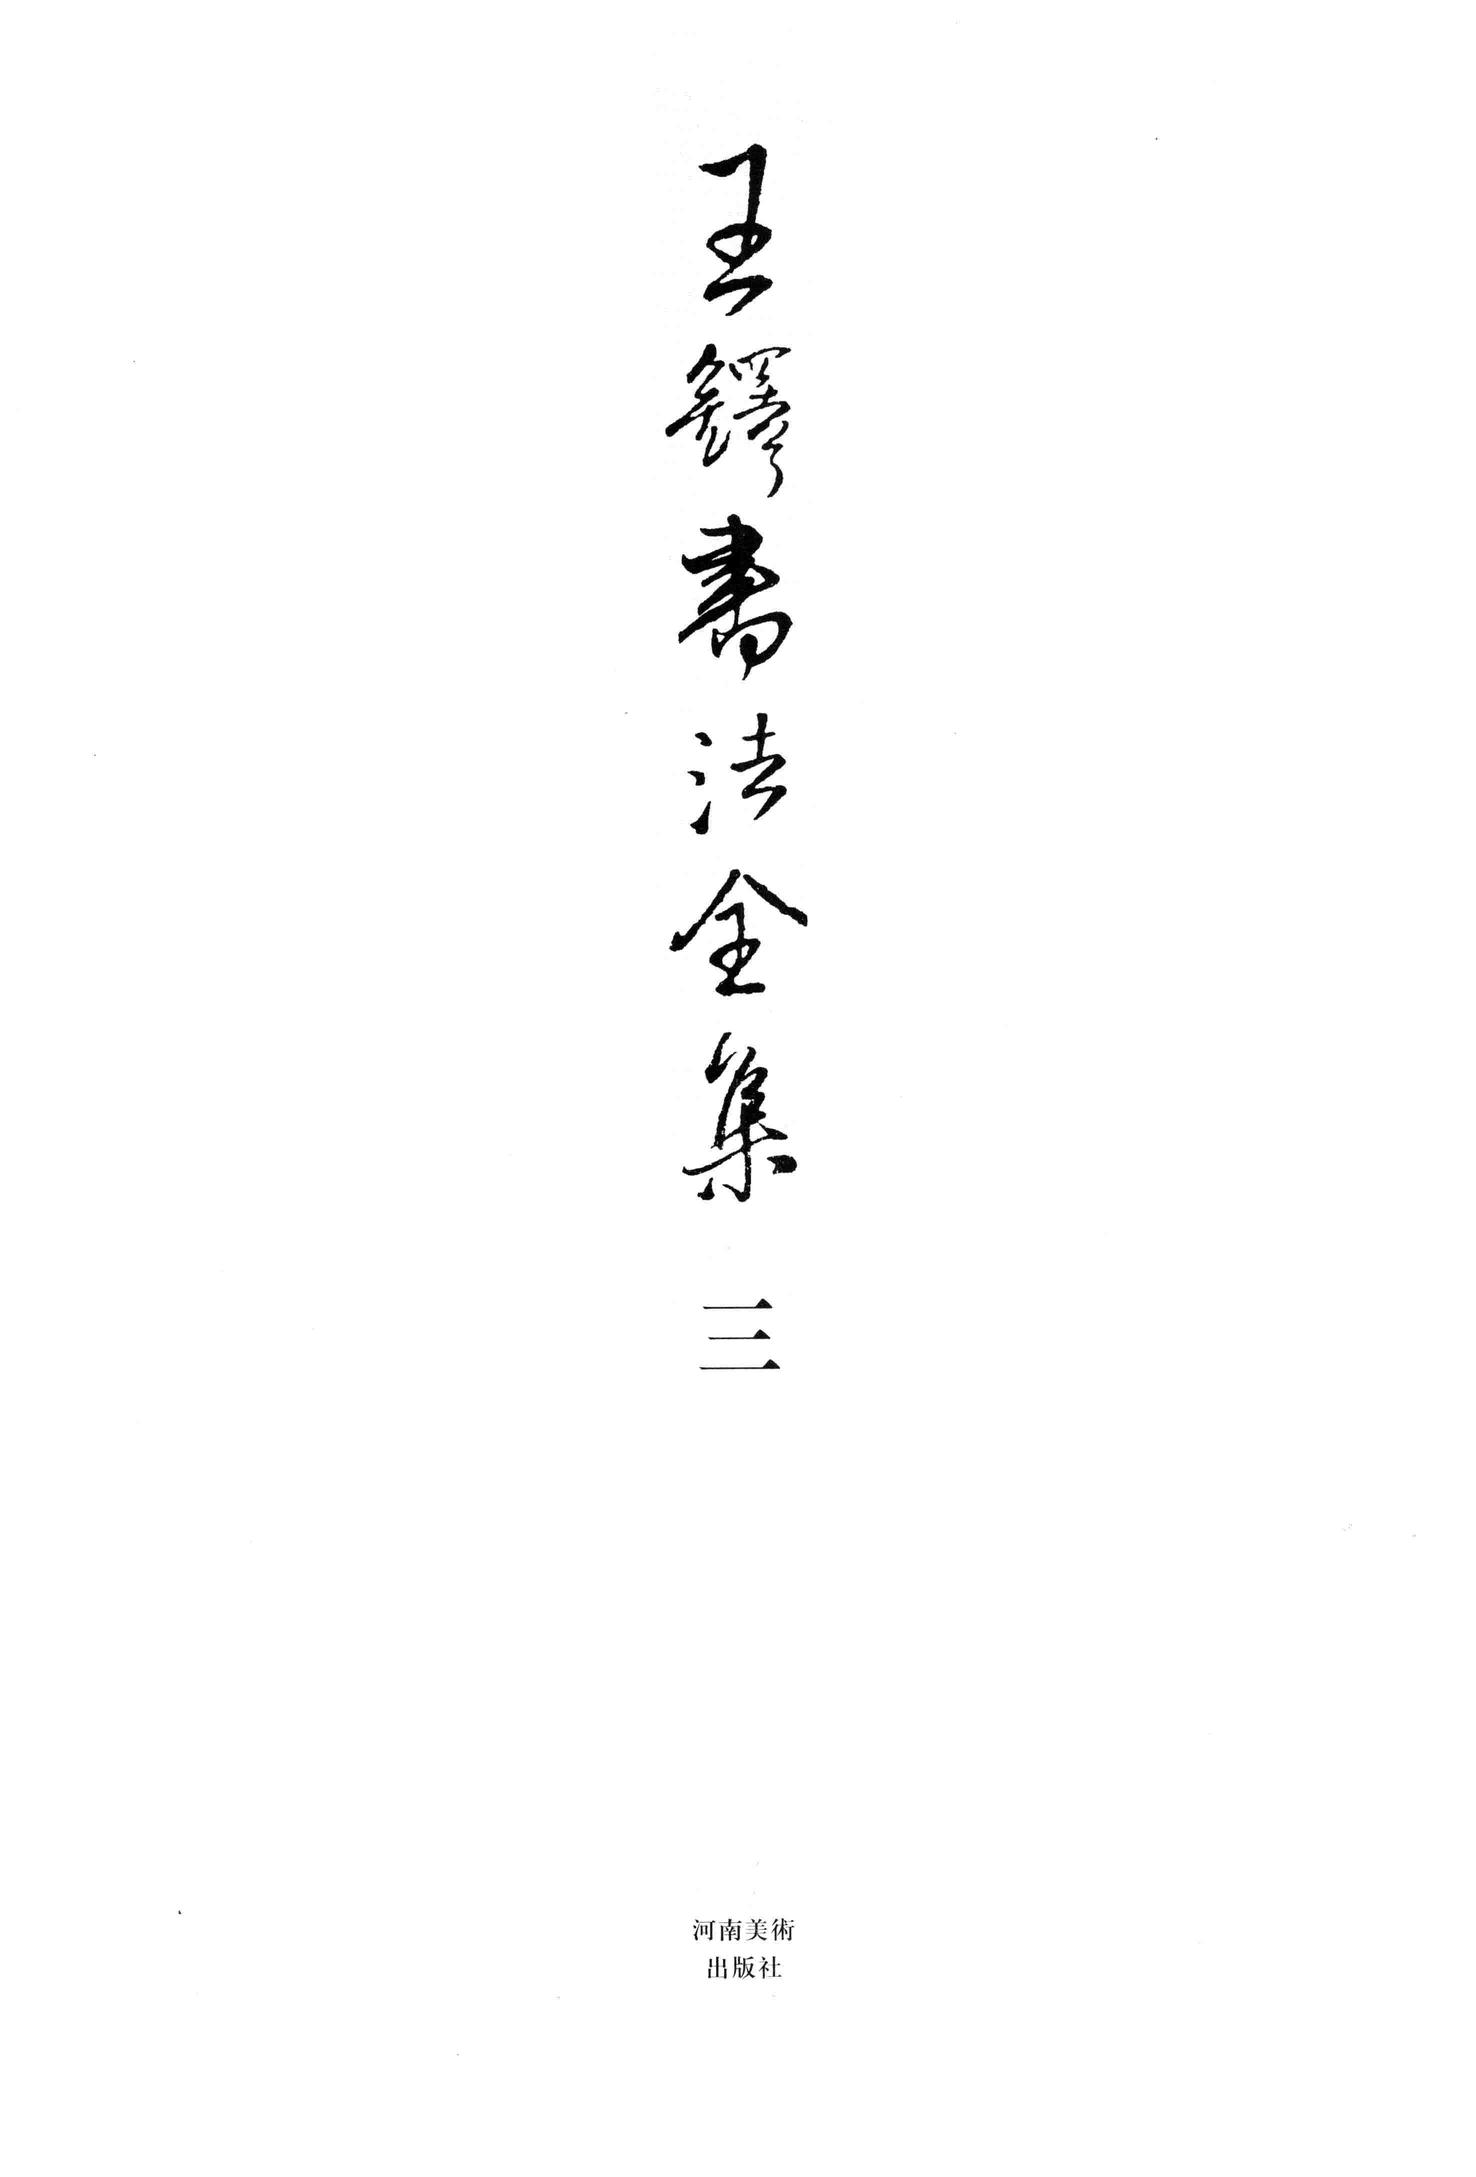 王鐸書法全集
三
河南美術
出版社